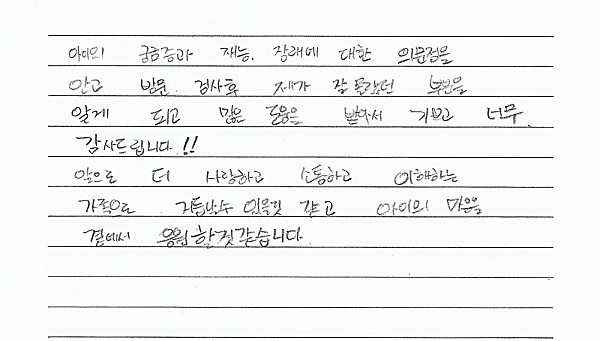 아이의 궁금증과 재능. 장래에 대한 의문점을
안고 방문. 검사후 제가 잘 몰랐던 부분을
알게 되고 많은 도움을 받아서 기쁘고 너무
감사드립니다!!
앞으로 더 사랑하고 소통하고 이해하는
가족으로 거듭날수 있을것 같고 아이의 마음을
곁에서 응원할것같습니다.